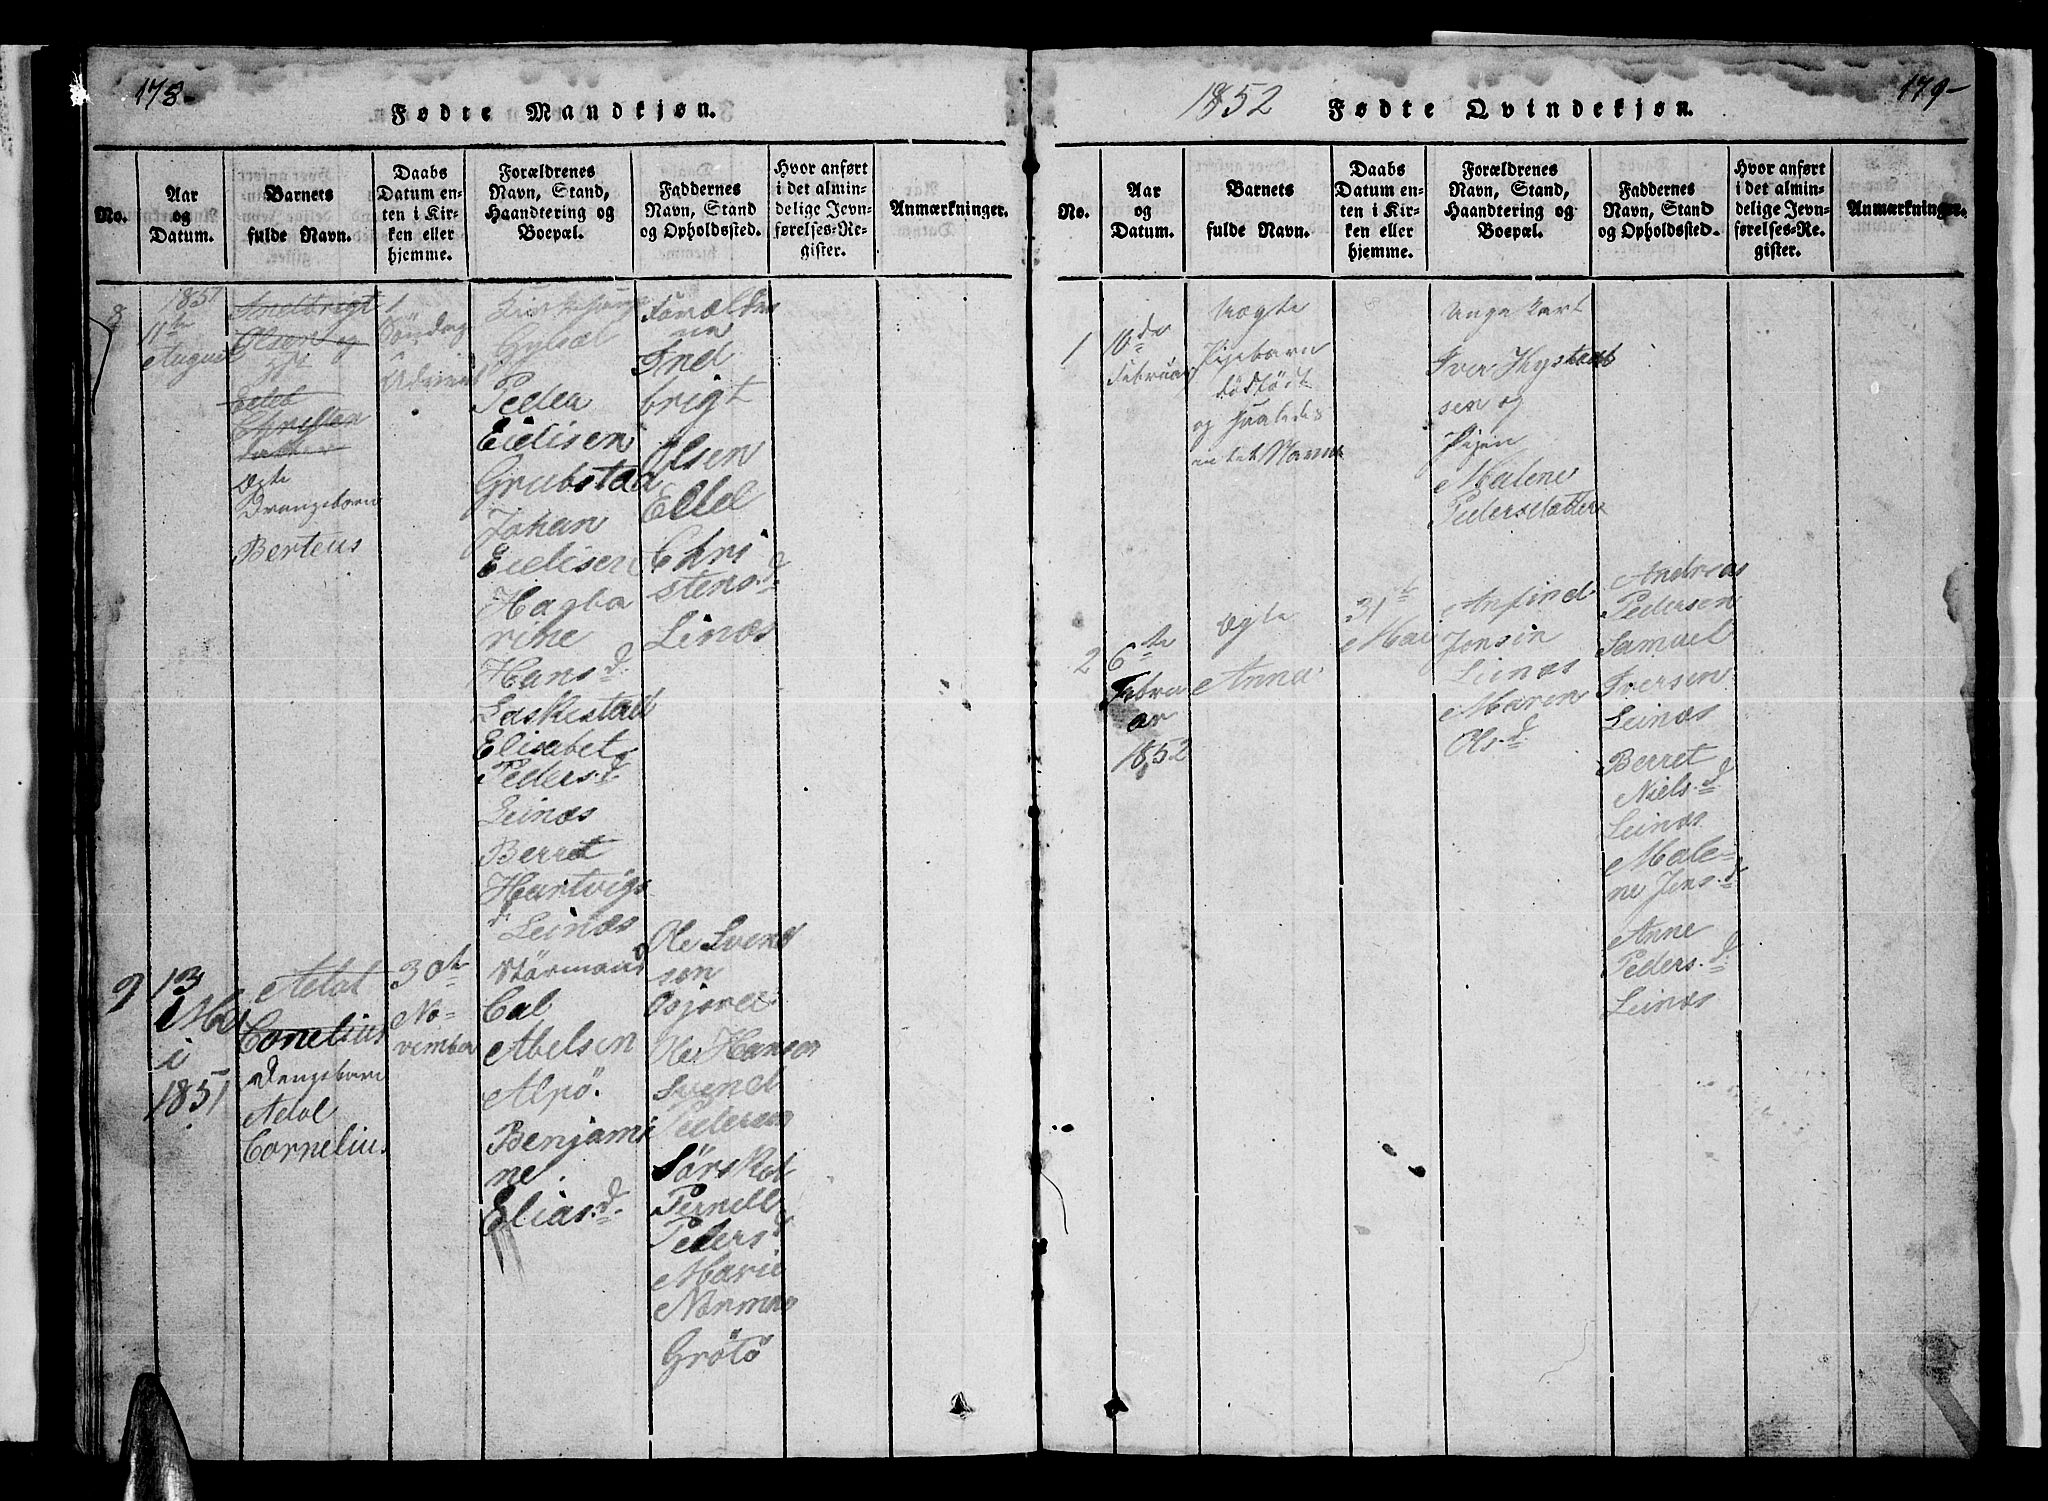 178
Fødte Mandkjøn.
No.
Aar
og
Datum.
Barnets
fulde Navn.
Daabs
Datum en-
ten i Kir-
ken eller
hjemme.
Forældrenes
Navn, Stand,
Haandtering og
Boepæl.
Faddernes
Navn, Stand
og Opholdssted.
Hvor anført
i det almin-
delige Jevn-
førelses-Re-
gister.
Anmærkninger.
8
1851
11te
August
Indbrigt
Olsen og
Ellet
Christen
datter
Ægte
Drengebarn
Berteus
1
Söndag
i
Advent
Peder
Eidisen
Grubstad
Johan
Eidisen
Hagba
rine
Hans d.
Saskestad
Elisabet
Peders. d.
Leinæs
Berret
Hartvigs
d. Leinæs
Forældre
ne
Ind
brigt
Olsen
Ellel
Chri
stens. d.
Linæs
9
13
Ma
i
1851
Adal
Conelius
Drengebarn
Adal
Cornelius
30te
No-
vember
Cal
Abelsen
Alpö.
Benjami
ne.
Elias. d.
Ole Svend
sen
Osjord
Ole Hansen
Svend
Pedersen
Sörskot
Pernell
Peders d
Marie
Normas
Grötö
1852
Fødte Qvindekjøn.
179-
No.
Aar
og
Datum.
Barnets
fulde Navn.
Daabs
Datum en-
ten i Kir-
ken eller
hjemme.
Forældrenes
Navn, Stand,
Haandtering og
Boepæl.
Faddernes
Navn, Stand
og Opholdssted.
Hvor anført
i det almin-
delige Jevn-
førelses-Re-
gister.
Anmærkninger.
1
10de
Februar
Uægte
Pigebarn
dödfödt
og saaledes
intet Navn
Ungekarl
Iver Thystad
sen og
Pigen
Malene
Pedersdatter
2
6te
Febru
ar
1852
Ægte
Anna
31te
Mai
Anfind
Jensin
Leinæs
Maren
Ols. d.
Andreas
Pedersen
Samuel
Iversen
Leinæs
Berret
Niels. d.
Leinæs
Male-
ne Jens. d.
Anne
Peders. d.
Leinæs